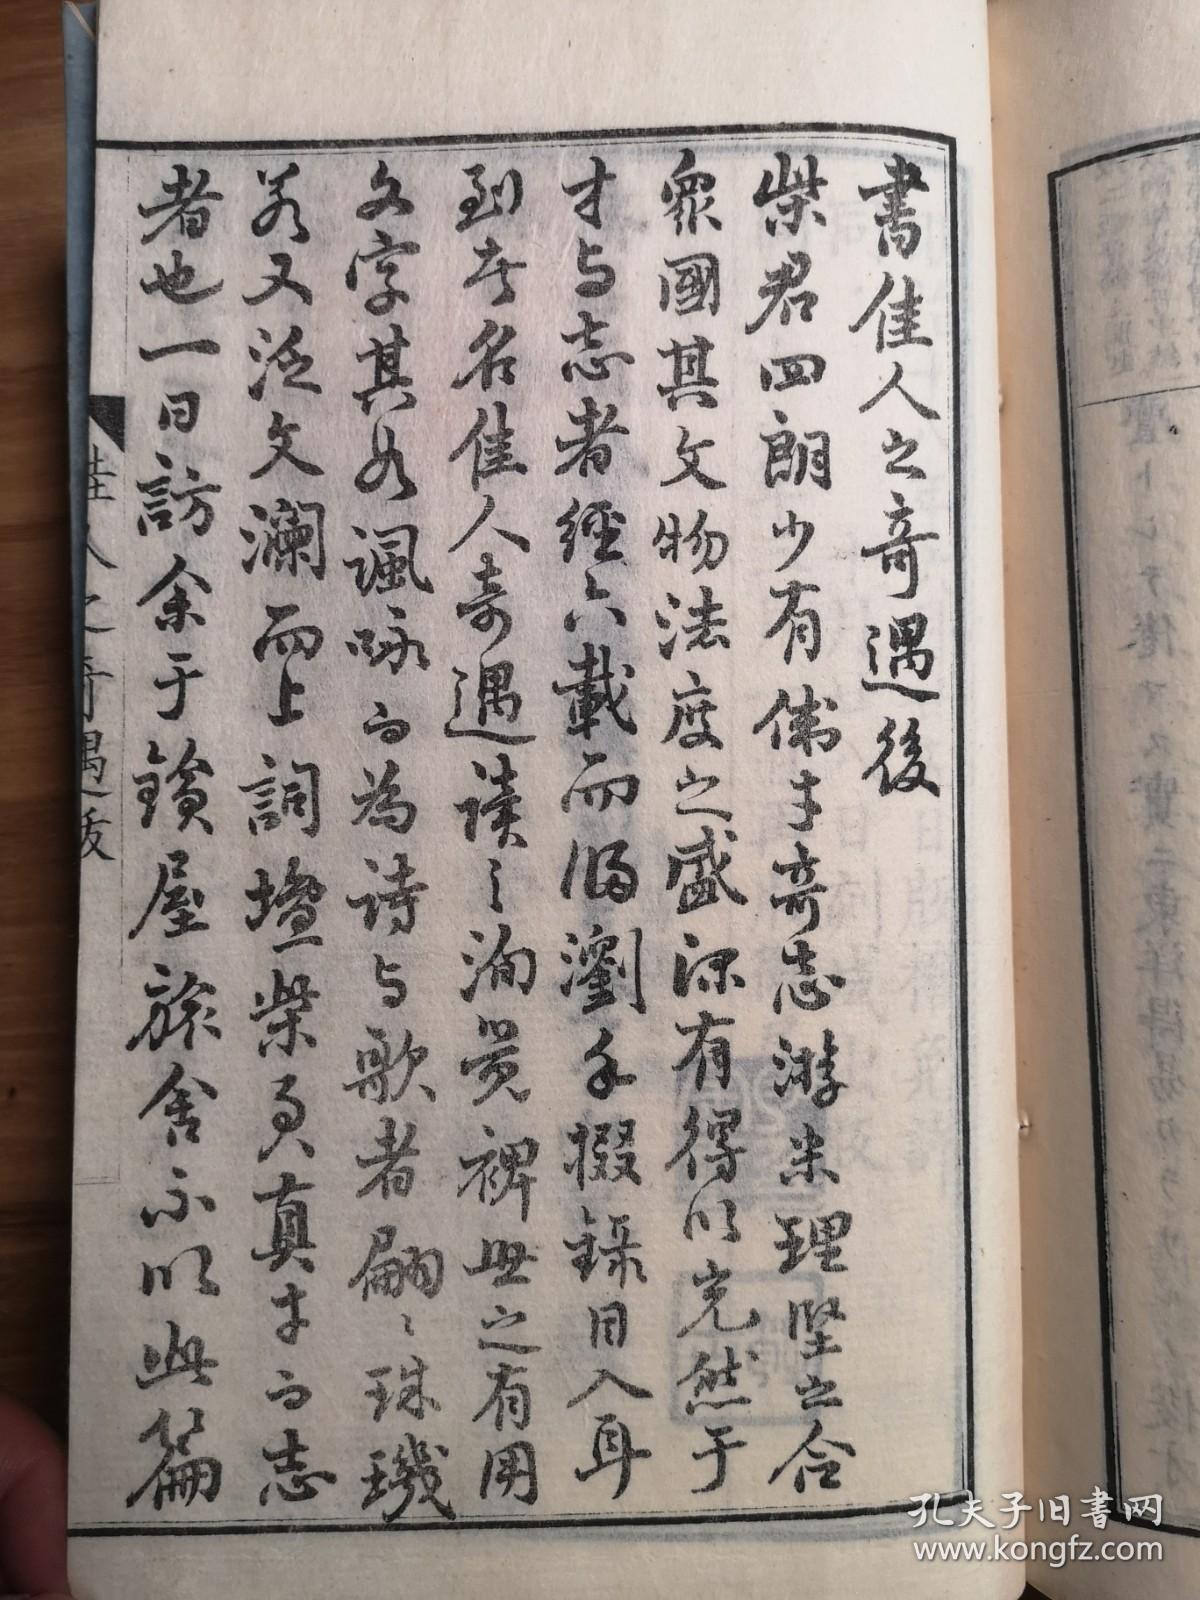 書佳人之奇遇後
柴君四朗少有偉才奇志游米理堅之合
衆國其文物法度之盛深有得以充然于
才与志者經六載而歸瀏手掇録目入耳
到者名佳人奇遇讀之洵覺裨世之有用
文字其如諷咏而為詩与歌者翩〻珠璣
若又泛文瀾而上詞壇柴君真才而志
者也一日訪余于鎗屋旅舍示以此篇
佳人之奇遇 跋
孔夫子旧书网
www.kongfz.com